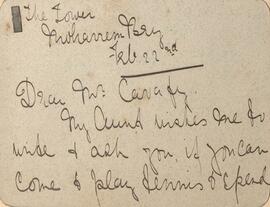 The Tower
Moharrem Bey
Feb. 22nd
Dear Mr. Cavafy.
My Aunt wishes me to
write & ask you, if you can
come & play tennis & spend